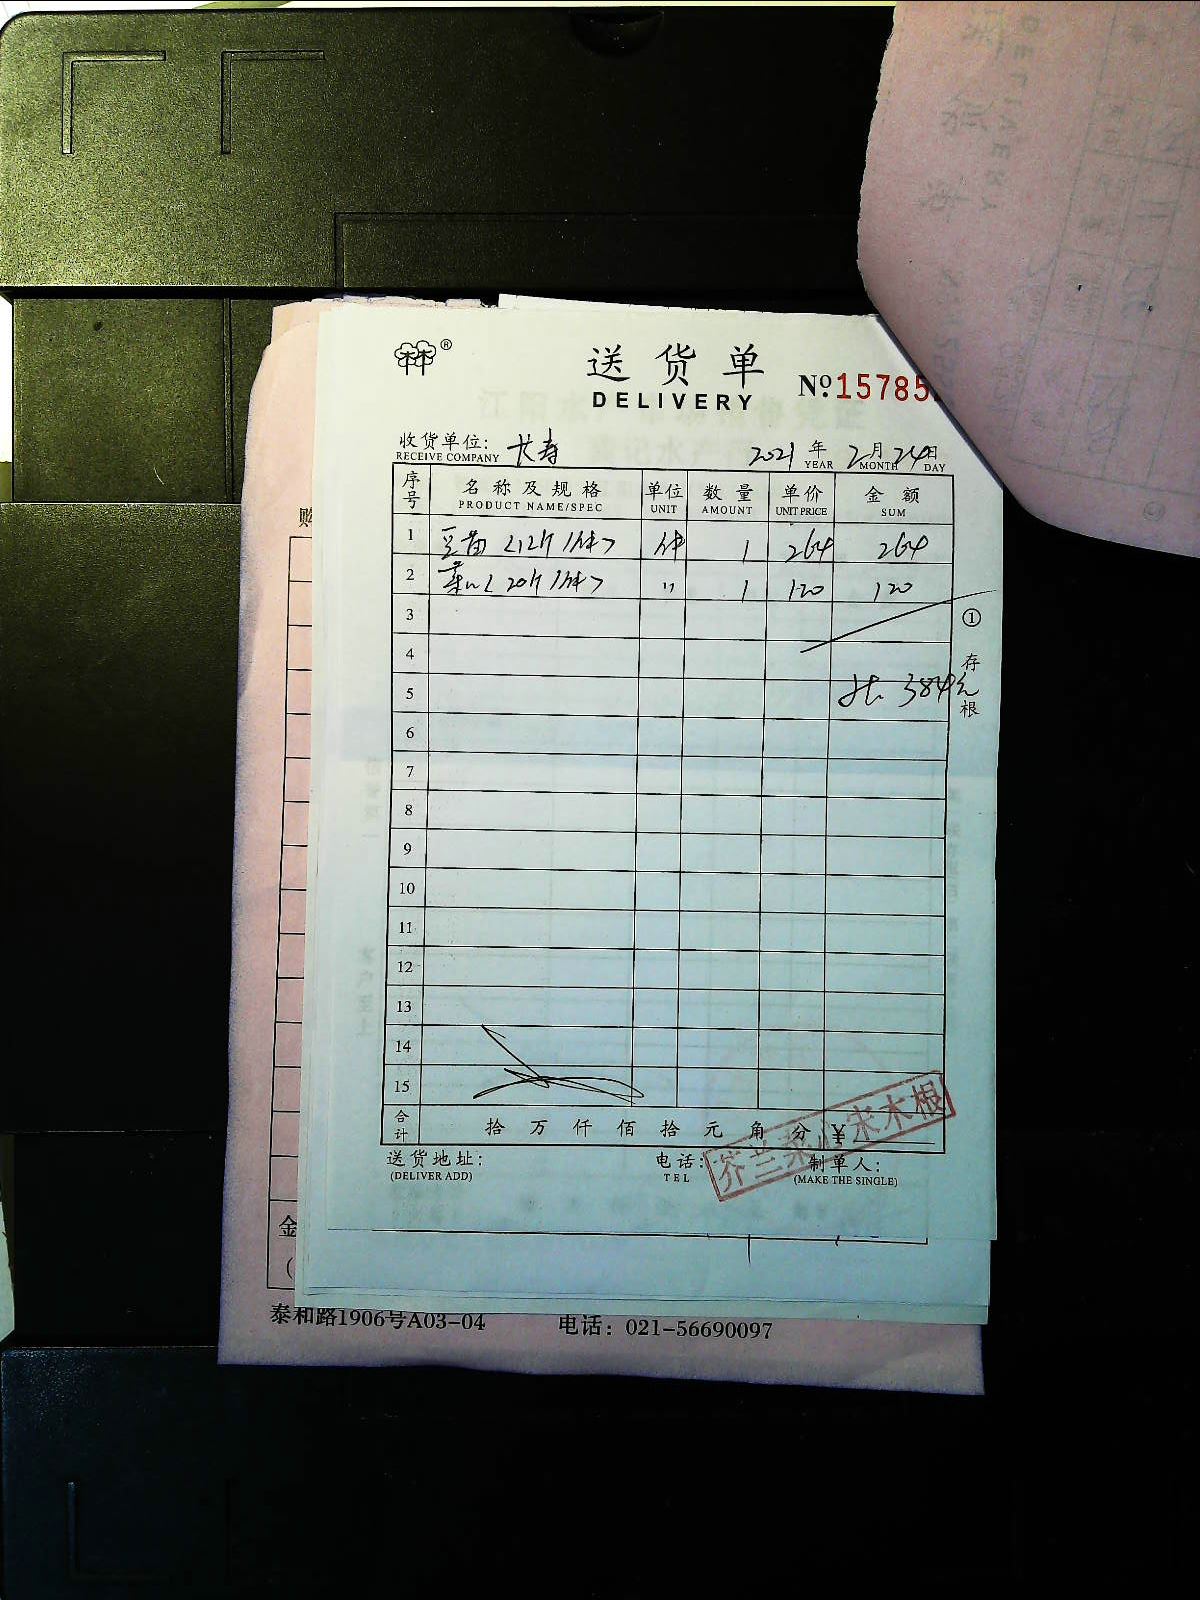 送货单
DELIVERY
№15785
收货单位: 长寿
RECEIVE COMPANY
2021年2月24日
YEAR MONTH DAY
序号 名称及规格 单位 数量 单价 金额
PRODUCT NAME/SPEC UNIT AMOUNT UNIT PRICE SUM
1 豆苗<12斤/件> 件 1 264 264
2 菜心<20斤/件> 〃 1 120 120
3
4
5 共 384元
6
7
8
9
10
11
12
13
14
15
① 存根
合计 拾万仟佰拾元角分 ¥
送货地址: 电话: 制单人:
(DELIVER ADD) TEL (MAKE THE SINGLE)
芥兰菜心米木根
购
金
(
泰和路1906号A03-04 电话：021-56690097